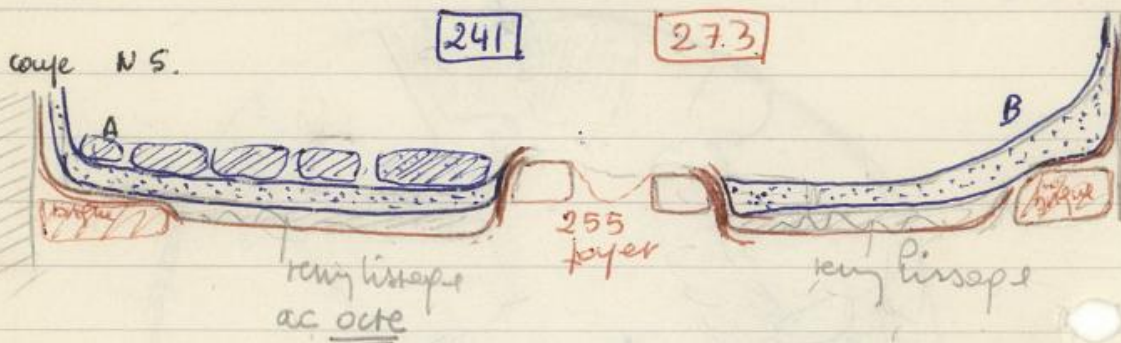 241 27.3
coupe N S.
A B
brique brique
255
foyer
remplissage remplissage
ac ocre